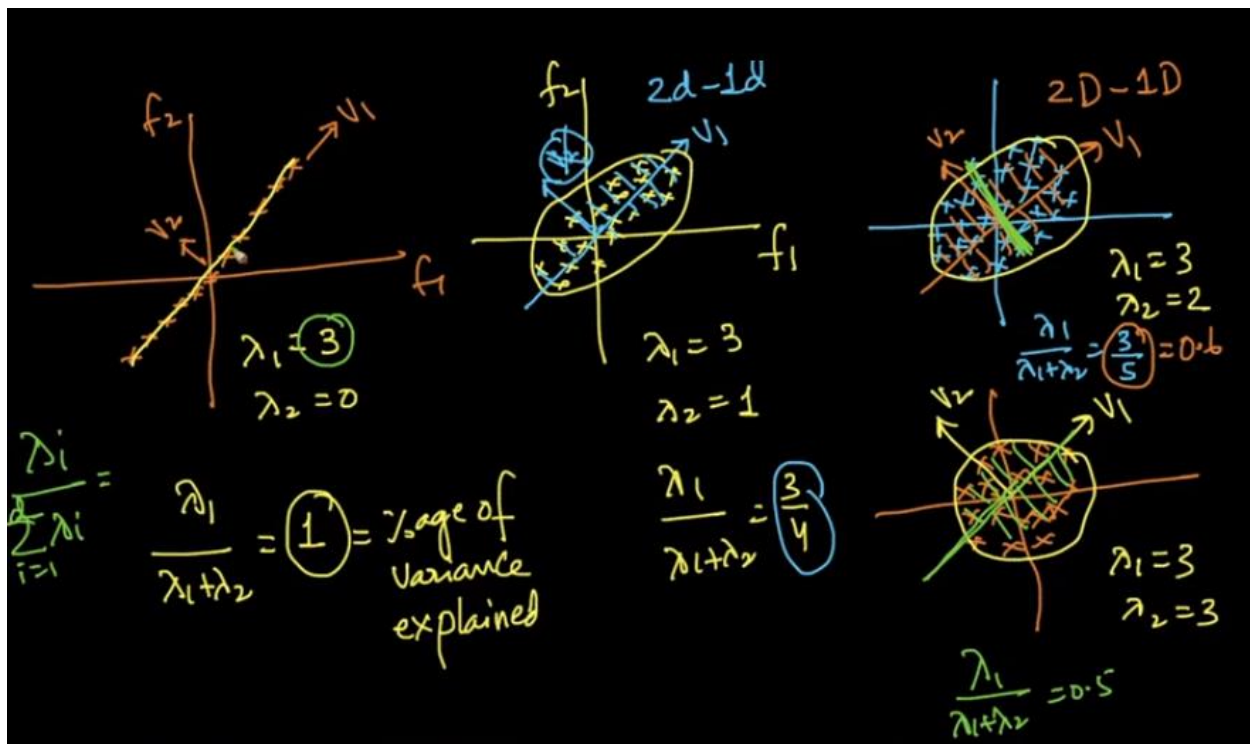 f₂
V₁
V₂
f₁
λ₁ = 3
λ₂ = 0
λi / Σ λi =
d
i=1
λ₁ / λ₁+λ₂ = 1 = %age of
variance
explained
f₂
2d-1d
V₁
V₂
f₁
λ₁ = 3
λ₂ = 1
λ₁ / λ₁+λ₂ = 3/4
2D-1D
V₂
V₁
λ₁ = 3
λ₂ = 2
λ₁ / λ₁+λ₂ = 3/5 = 0.6
V₂
V₁
λ₁ = 3
λ₂ = 3
λ₁ / λ₁+λ₂ = 0.5